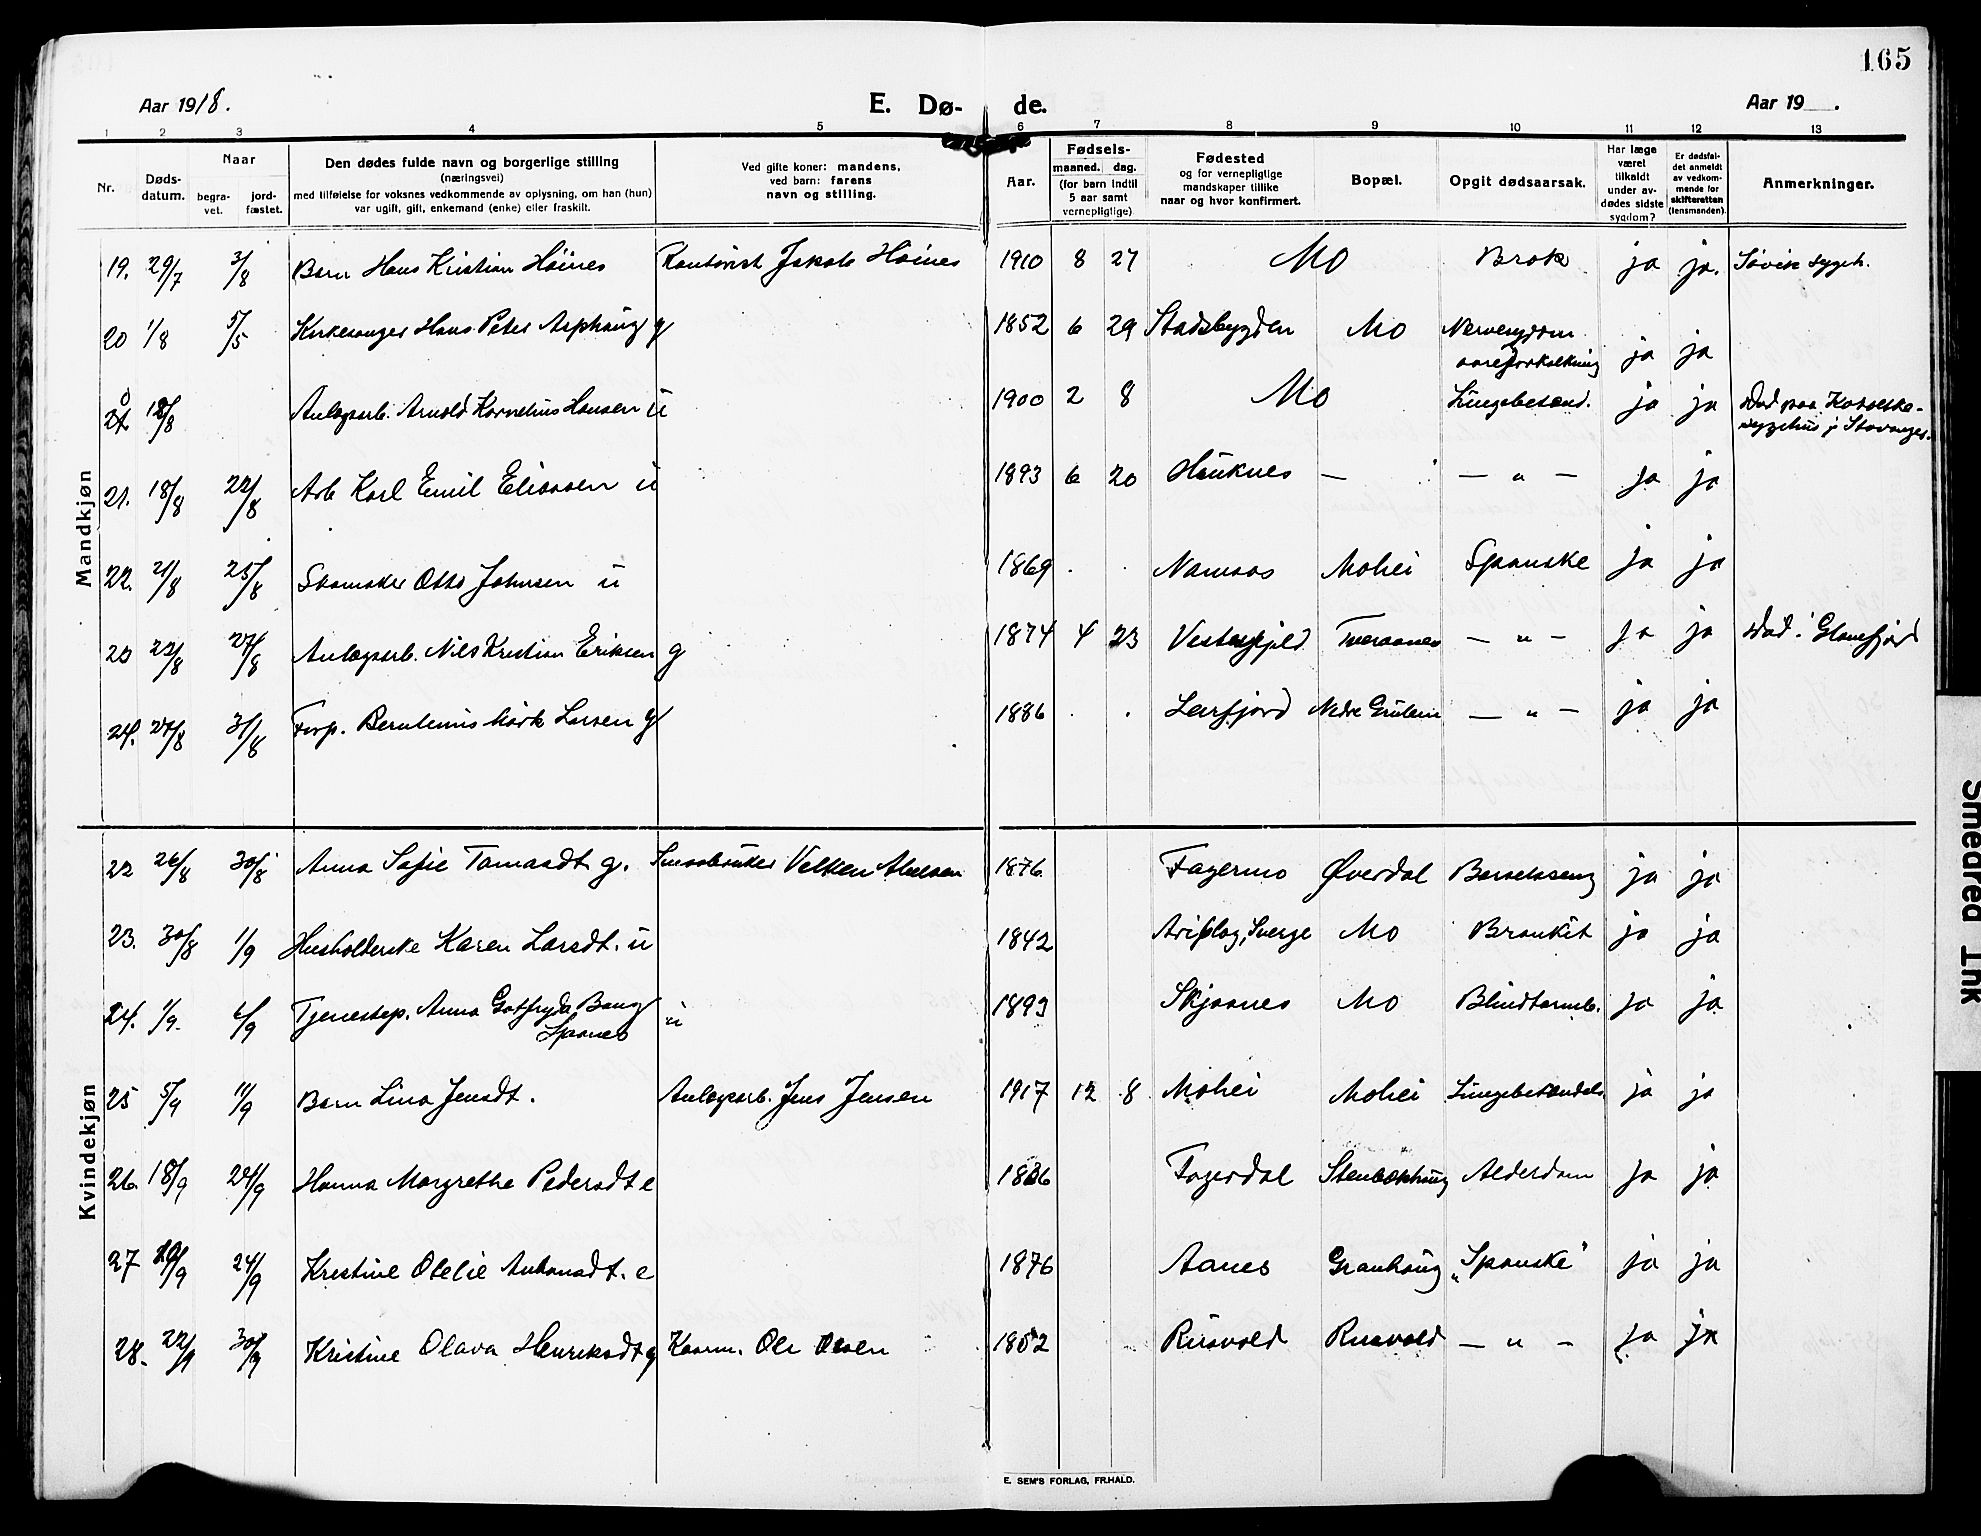 165
Aar 1918. E. Dø- de. Aar 19 .
1 2 3 4 5 6 7 8 9 10 11 12 13
Nr. Døds-datum. Naar begra-vet. jord-fæstet. Den dødes fulde navn og borgerlige stilling (næringsvei) med tilføielse for voksnes vedkommende av oplysning, om han (hun) var ugift, gift, enkemand (enke) eller fraskilt. Ved gifte koner: mandens, ved barn: farens navn og stilling. Aar. Fødsels- maaned. dag. (for barn indtil 5 aar samt vernepligtige) Fødested og for vernepligtige mandskaper tillike naar og hvor konfirmert. Bopæl. Opgit dødsaarsak. Har læge været tilkaldt under av-dødes sidste sygdom? Er dødsfal-det anmeldt av vedkom-mende for skifteretten (lensmanden). Anmerkninger.
Mandkjøn
19. 29/7 3/8 Barn Hans Kristian Høines Kontorist Jakob Høines 1910 8 27 Mo Brok ja ja. Søvik sygeh.
20 1/8 5/5 Kirkesanger Hans Peter Asphaug g 1852 6 29 Stadsbygden Mo Nervesygdom aareforkalkning ja ja
18/8 Anlægsarb. Arnold Kornelius Hansen u 1900 2 8 Mo Lungebetænd. ja ja Død paa sygehus i Stavanger.
21. 18/8 22/8 Arb Karl Emil Eliassen u 1893 6 20 Hauknes — — " — ja ja
22. 21/8 25/8 Skomaker Otto Johnsen u 1869 . . Namsos Mohei Spanske ja ja
23 22/8 27/8 Anlægsarb. Nils Kristian Eriksen g 1874 4 23 Vesterfjeld Tveraanes — " — ja ja Død i Glomfjord
24. 27/8 31/8 Forp. Berntinus Mörk Larsen g 1886 . . Leirfjord Nedre Gruben — " — ja ja
Kvindekjøn
22 26/8 30/8 Anna Sofie Tomasdt g. Smaabruker Velken Alelsen 1876 Fagermo Øverdal Barselseng ja ja
23. 30/8 1/9 Husholderske Karen Larsdt. u 1842 Ariplog, Sverge Mo Bronkit ja ja
24. 1/9. 6/9 Tjenestep. Anna Gotfryda Bang Spanes u 1893 Skjaanes Mo Blindtarmb. ja ja
25 5/9 11/9 Barn Lina Jensdt. Anlægsarb. Jens Jensen 1917 12 8 Mohei Mohei Lungebetændels. ja ja
26. 18/9 24/9 Hanna Margrethe Pedersdt e 1836 Fagerdal Stenbækhaug Alderdom ja ja
27 20/9 24/9 Kristine Otelie Antonsdt. e 1876 Aanes Granhaug „Spanske" ja ja
28. 22/9 30/9 Kristine Olava Henriksdt g Kaarm. Ole Olsen 1852 Rusvold Rusvold — " — ja ja
E. SEM'S FORLAG, FR.HALD.
Smeared Ink